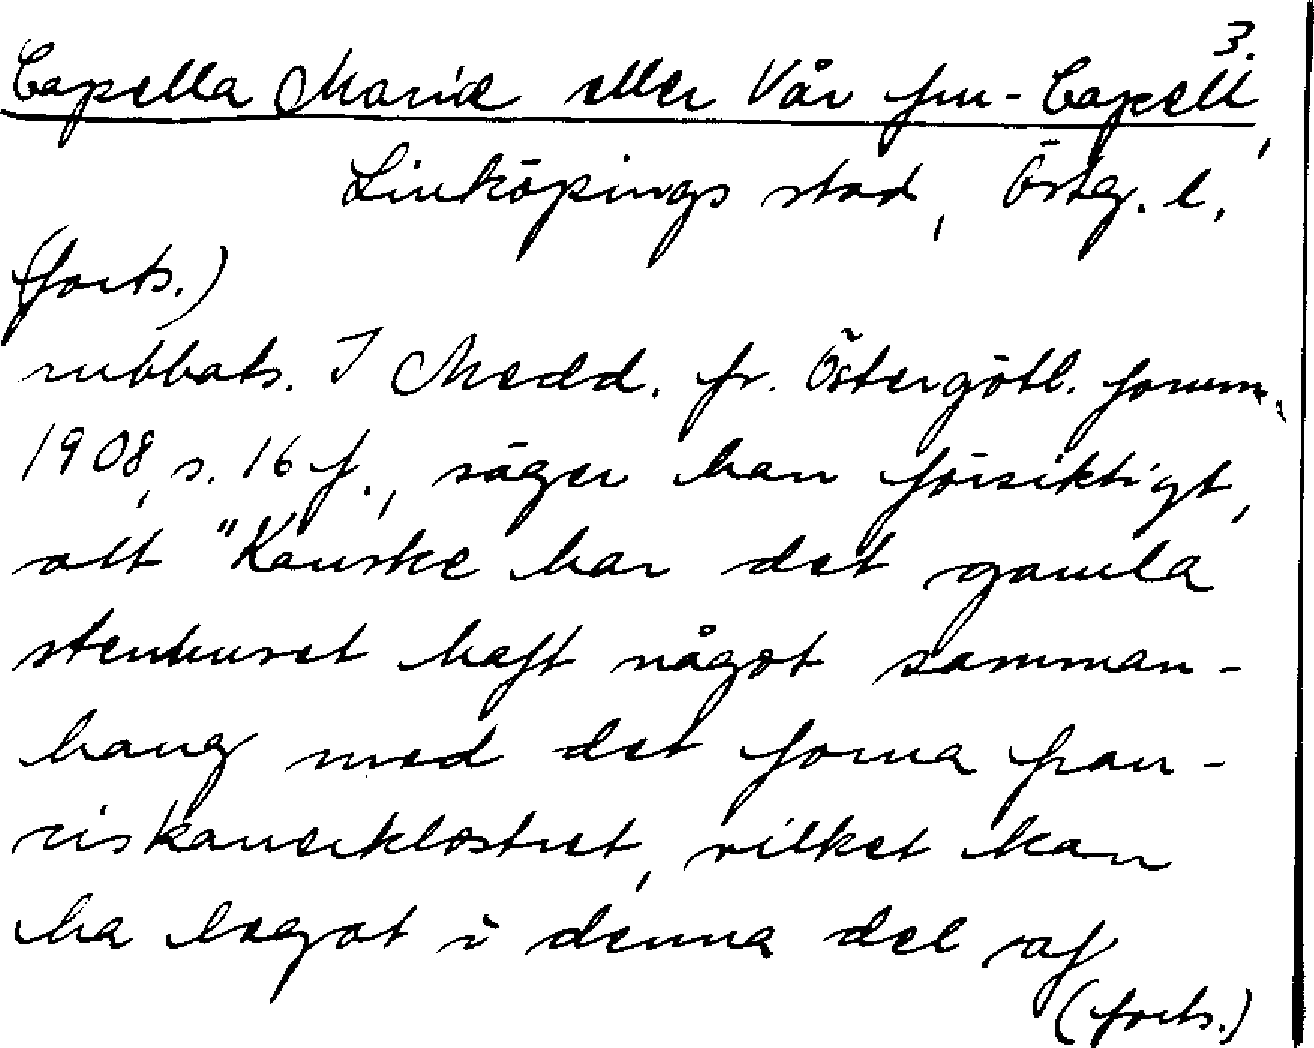 3.
Capella Mariæ eller Vår fru-Capell,
Linköpings stad, Österg. l.
(forts.)
rubbats. I Medd. fr. Östergötl. fornm.
1908, s. 16 f., säger han försiktigt,
att "Kanske har det gamla
stenhuset haft något samman-
hang med det forna fran-
ciskanerklostret, vilket kan
ha legat i denna del af
(forts.)